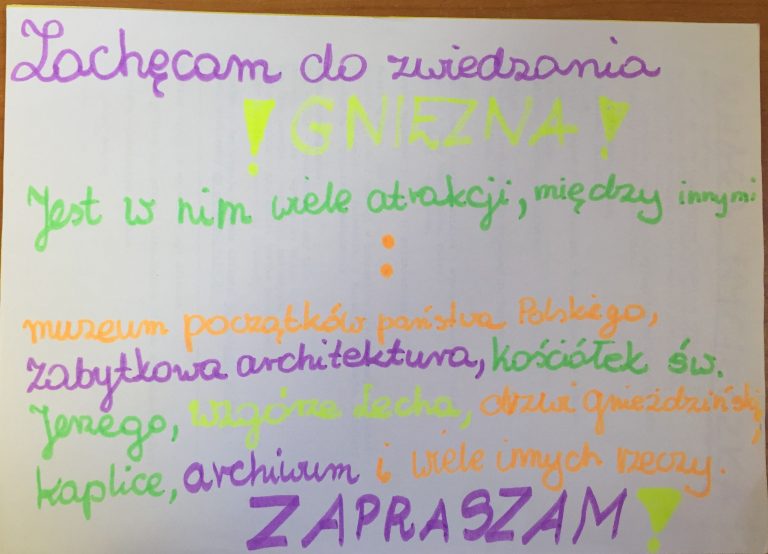 Zachęcam do zwiedzania
! GNIEZNA !
Jest w nim wiele atrakcji, między innymi
:
muzeum początków państwa Polskiego,
zabytkowa architektura, kościółek św.
Jerzego, wzgórze Lecha, drzwi gnieździński,
kaplice, archiwum i wiele innych rzeczy.
ZAPRASZAM!